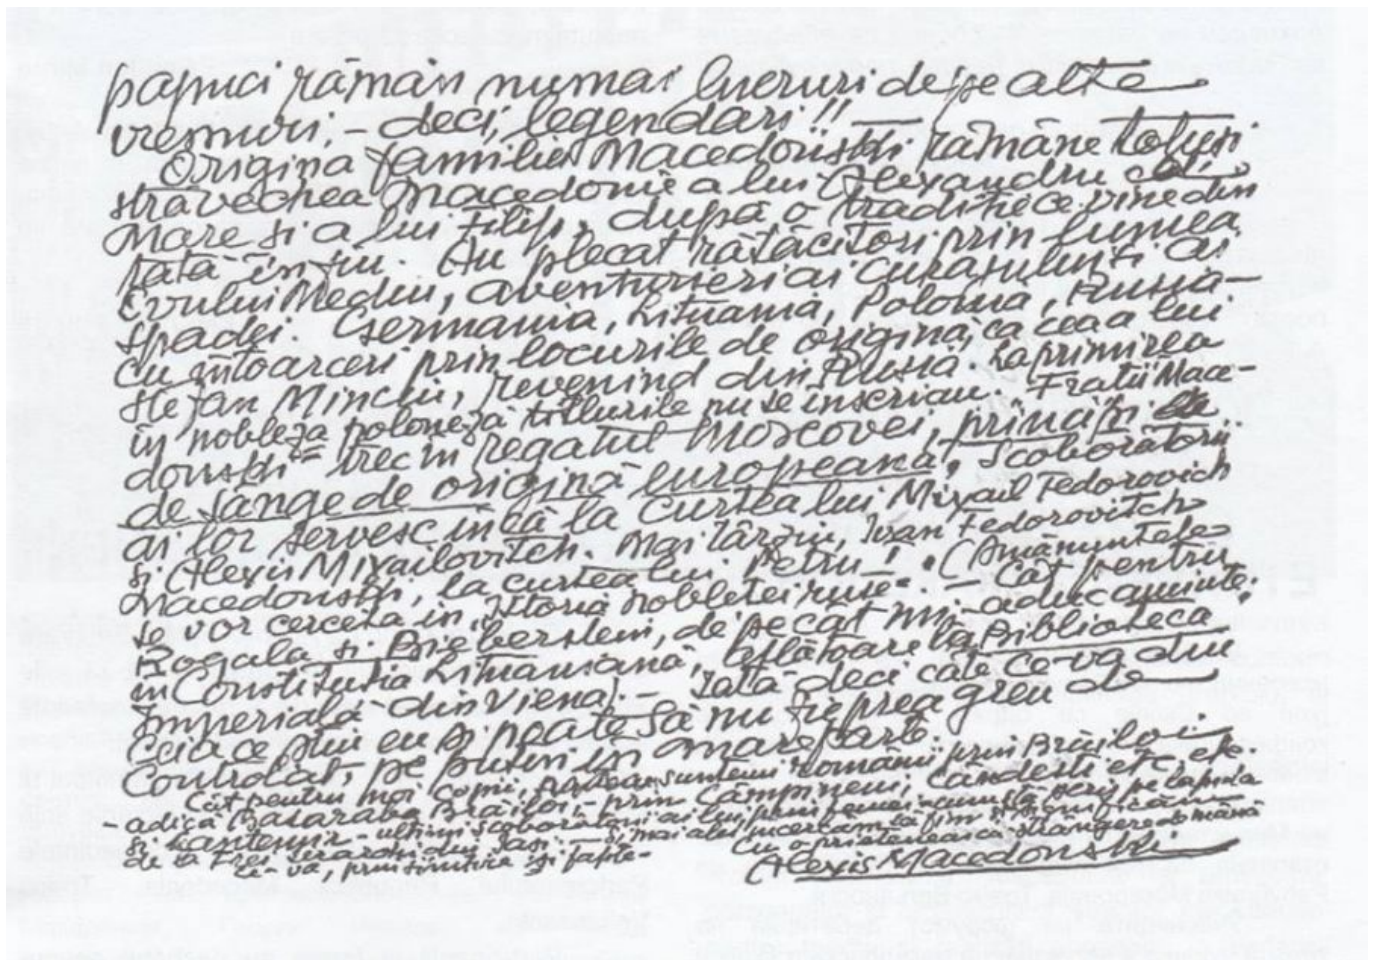 papuci rămân numai lucruri de pe alte
vremuri, – deci, legendari!!
Origina familiei Macedonski rămâne totuși
străvechea Macedonie a lui Alexandru cel
Mare și a lui Filip, după o tradiție ce vine din
tată în fiu. Au plecat rătăcitori prin lumea
Evului Mediu, aventurieri ai curajului și ai
spadei. Germania, Lituania, Polonia, Rusia –
cu întoarceri prin locurile de origină, ca cea a lui
Stefan Minciu, revenind din Rusia. La primirea
în nobleța poloneză titlurile nu se inscriau. Frații Mace-
donski trec în regatul Moscovei, principi
de sânge de origină europeană. Scoboratorii
ai lor servesc încă la Curtea lui Mixail Fedorovich
și Alexis Mixailovitch. Mai târziu, Ivan Fedorovitch
Macedonski, la curtea lui Petru I. (Amănuntele
se vor cerceta în Istoria nobleței ruse. Cât pentru
Rogala și Bieberstein, de pecât mi-aduc aminte,
în Constituția Lithuaniană, aflătoare la Biblioteca
Imperială din Viena) – Iată deci câte ceva din
ceia ce știu eu și poate să nu fie prea greu
controlat pe puteri în mare parte.
Cât pentru noi copii, suntem români prin Brăiloiu,
adică Basaraba Brăiloi, prin Câmpineni,
și Cantemir, ultimi scoboratori ai lui prin femei,
de la Trei Ierarhi din Iași. – Și mai ales încercăm să fim
cu o prietenească strângere de mână
Alexis Macedonski